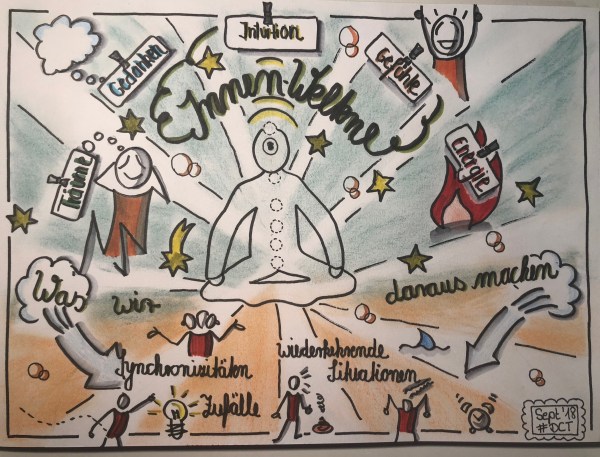 Intuition
Gedanken
Gefühle
Innen-Welten
Energie
Träume
Was wir daraus machen
Synchronizitäten
Wiederkehrende
Situationen
Zufälle
Sept '18
# DCT